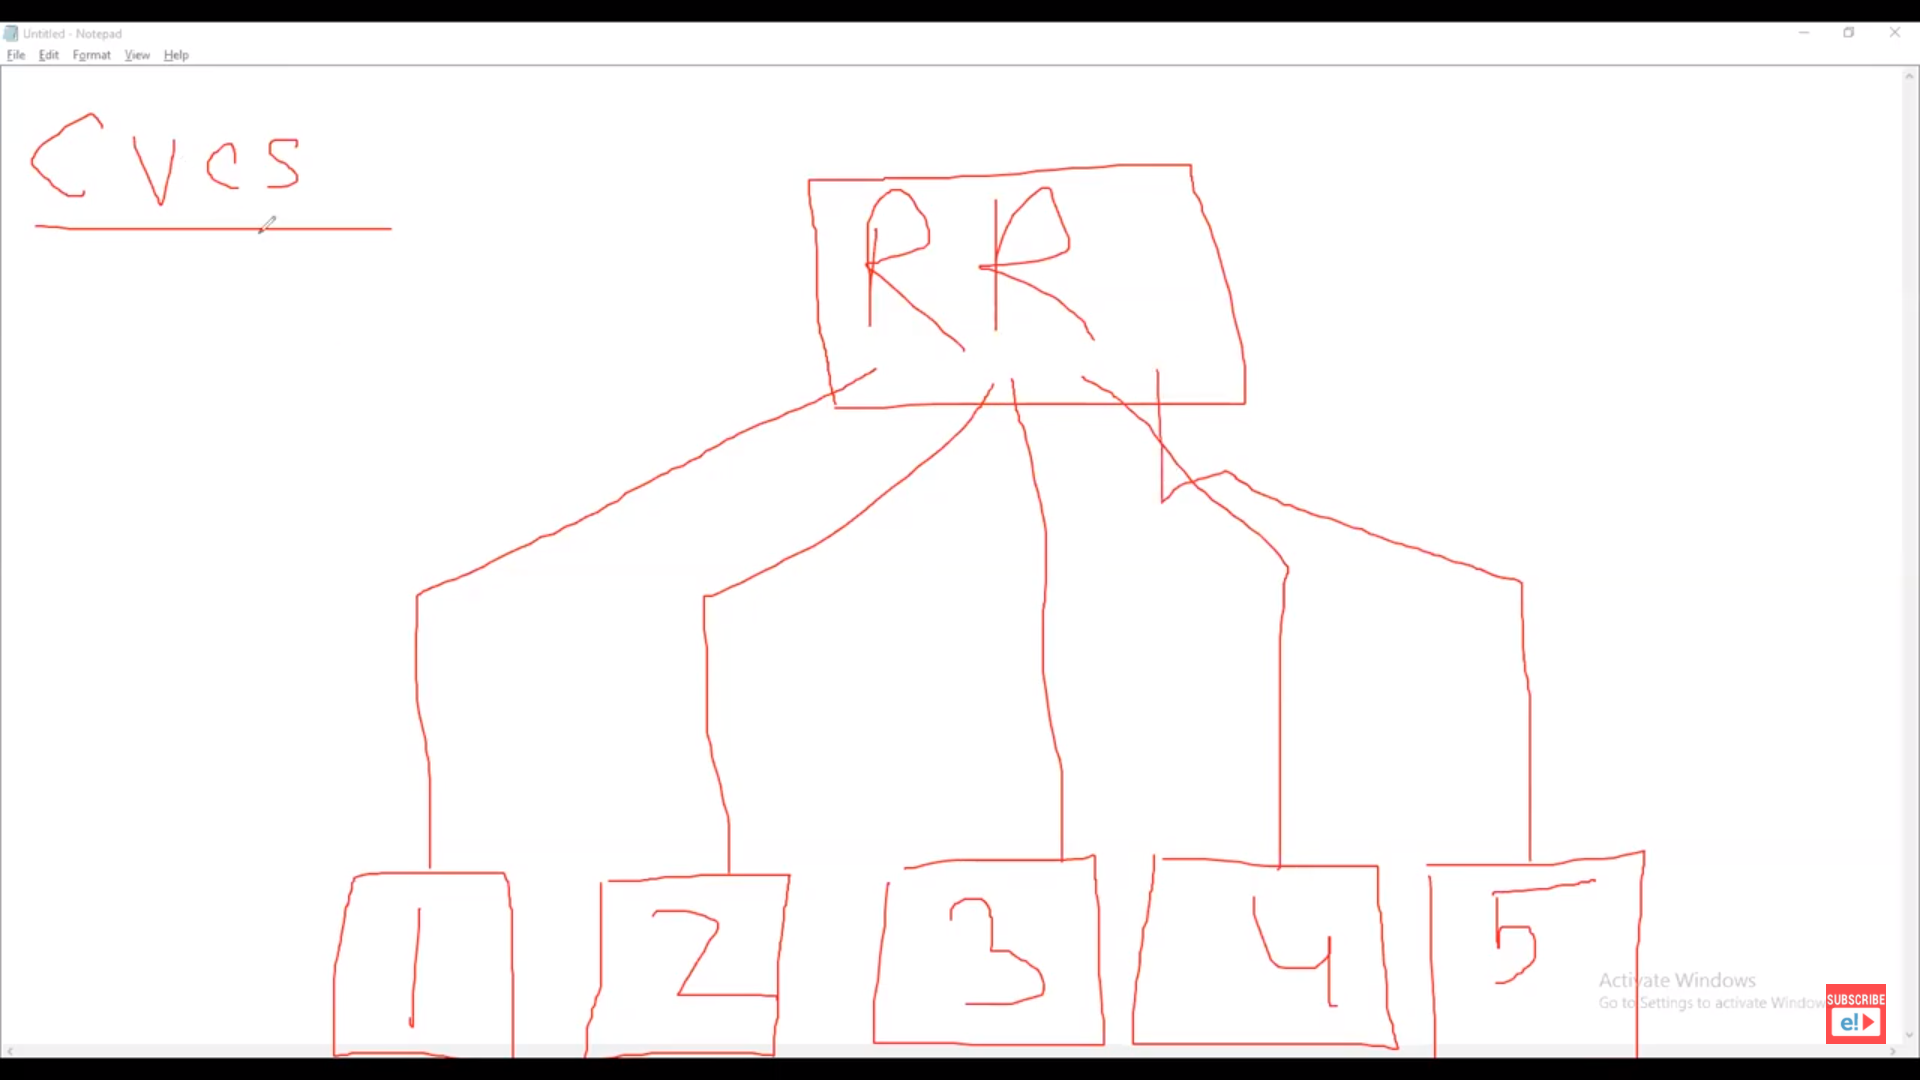 Untitled - Notepad
File Edit Format View Help
CVCS
RR
1 2 3 4 5
Activate Windows
Go to Settings to activate Window
SUBSCRIBE
e!